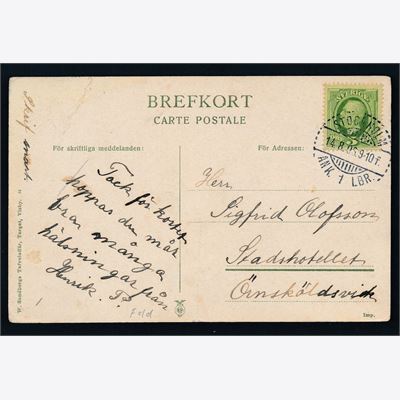 BREFKORT
CARTE POSTALE
För skriftliga meddelanden:
För Adressen:
Skrif snart
Tack för kortet
hoppas du mår
bra många
hälsningar från
Henrik. P.
Feld
SVERIGE
STOCKHOLM
14.8.
9-10 f.
ANK. 1 LBR.
Herr
Sigfrid Olofsson
Stadshotellet
Örnsköldsvick
W. Sandbergs Tafvelaffär, Torget, Visby.
Imp.